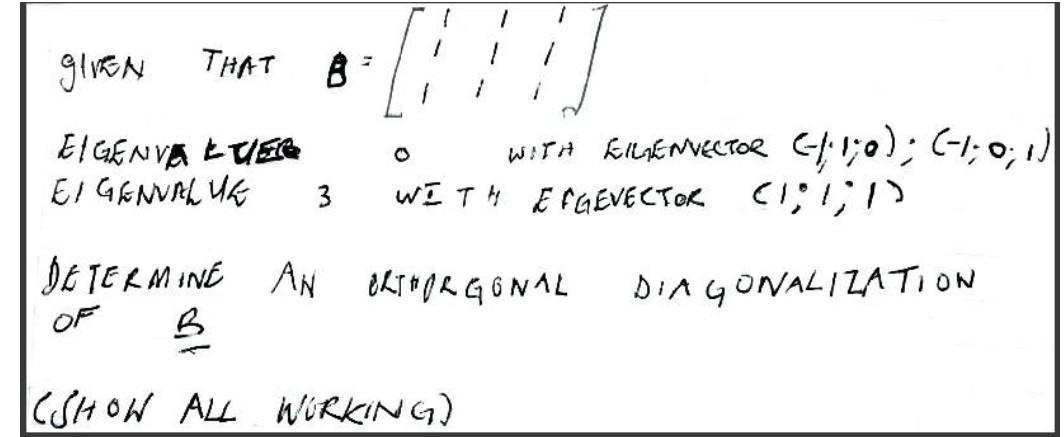 gIVEN THAT B = [ 1 1 1
1 1 1
1 1 1 ]
EIGENVALUE 0 WITH EIGENVECTOR (-1;1;0); (-1;0;1)
EIGENVALUE 3 WITH EIGEVECTOR (1;1;1)
DETERMINE AN ORTHORGONAL DIAGONALIZATION
OF B
(SHOW ALL WORKING)